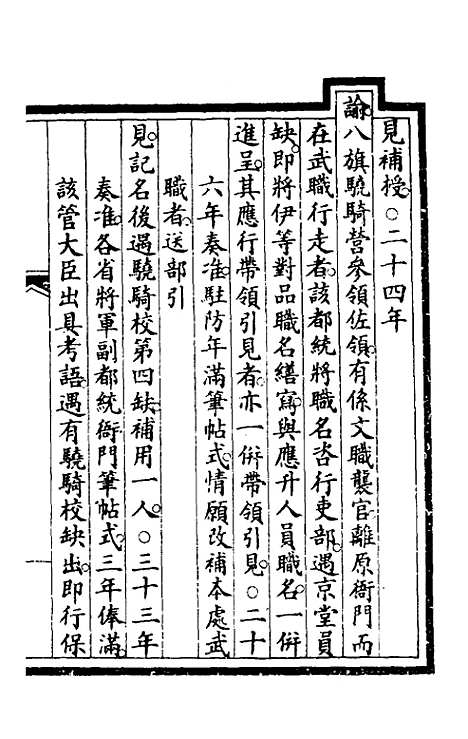 見補授。○二十四年
諭。八旗驍騎營參領佐領。有係文職襲官離原衙門而
在武職行走者。該都統將職名咨行吏部。遇京堂員
缺。即將伊等對品職名繕寫。與應升人員職名。一併
進呈。其應行帶領引見者。亦一併帶領引見。○二十
六年奏准。駐防年滿筆帖式。情願改補本處武
職者。送部引
見。記名後。遇驍騎校第四缺。補用一人。○三十三年
奏准。各省將軍副都統衙門筆帖式。三年俸滿。
該管大臣出具考語。遇有驍騎校缺出。即行保